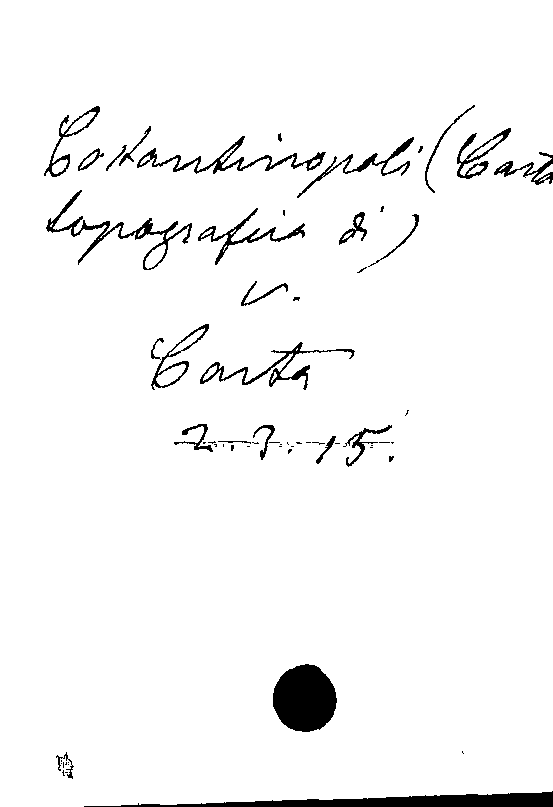 Costantinopoli (Carta
topografica di)
v.
Carta
2.3.15.